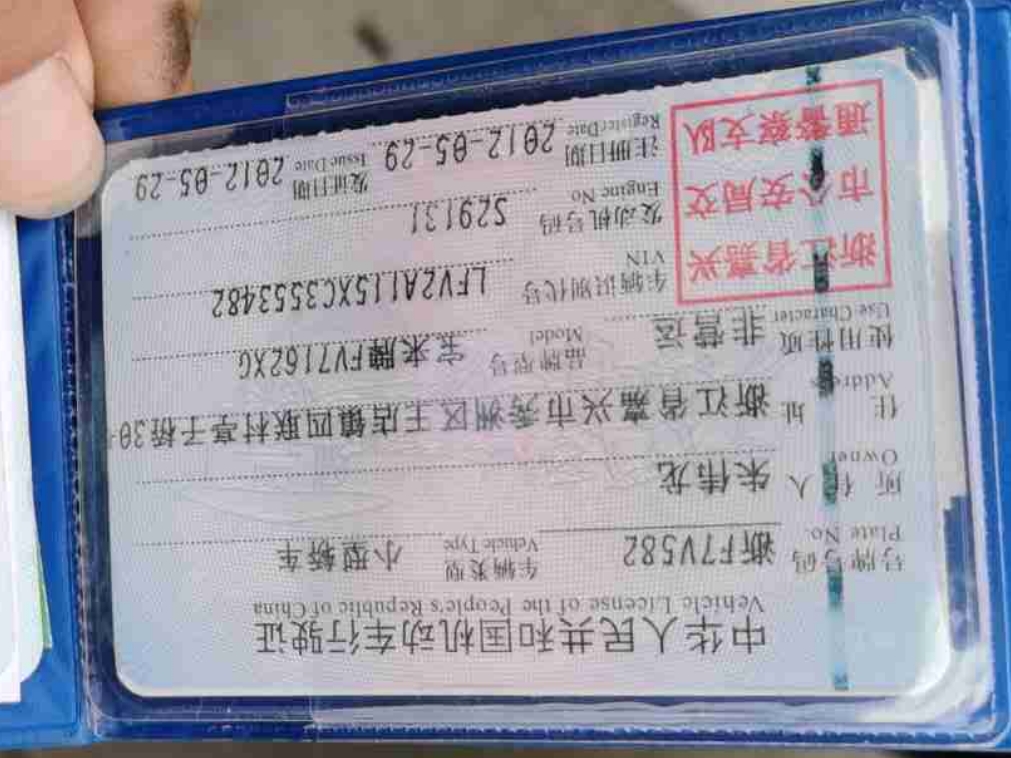 中华人民共和国机动车行驶证
Vehicle License of the People's Republic of China
号牌号码 浙F7V582 车辆类型 小型轿车
Plate No. Vehicle Type
所有人 朱伟龙
Owner
住址 浙江省嘉兴市秀洲区王店镇四联村亭子桥30
Address
使用性质 非营运 品牌型号 宝来牌FV7162XG
Use Character Model
浙江省嘉兴
市公安局交
通警察支队
车辆识别代号 LFV2A115XC3553482
VIN
发动机号码 S29131
Engine No.
注册日期 2012-05-29 发证日期 2012-05-29
Register Date Issue Date